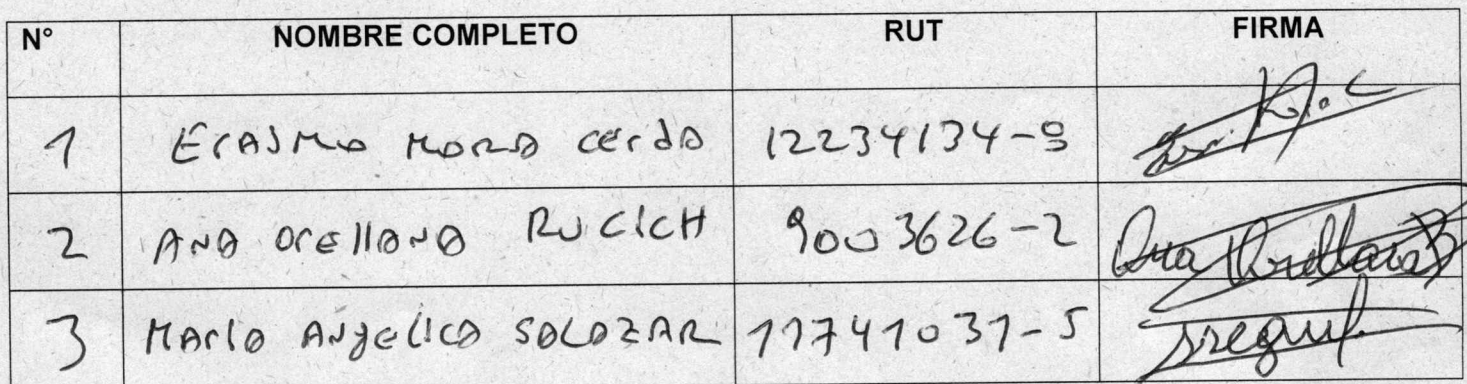 N° NOMBRE COMPLETO RUT FIRMA
1 Erasmo Mora Cerda 12234134-9
2 Ana Orellana Rucich 9003626-2 Ana Orellana R
3 Maria Angelica Salazar 11741031-5